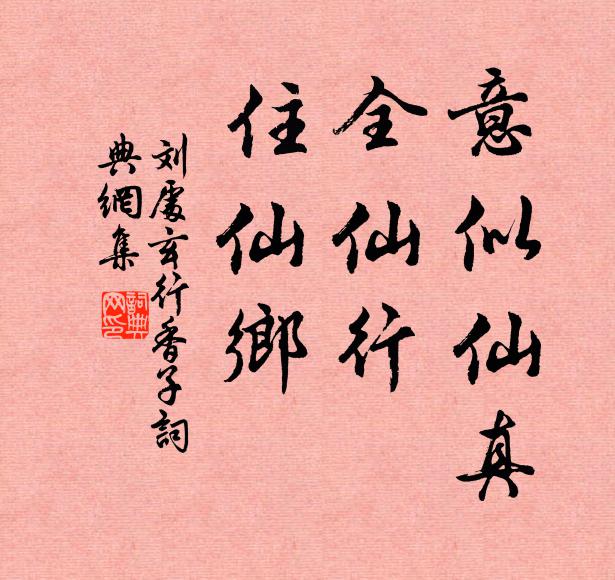 意似仙真
全仙行
住仙鄉
刘處玄行香子詞
典網集
詞典
网印